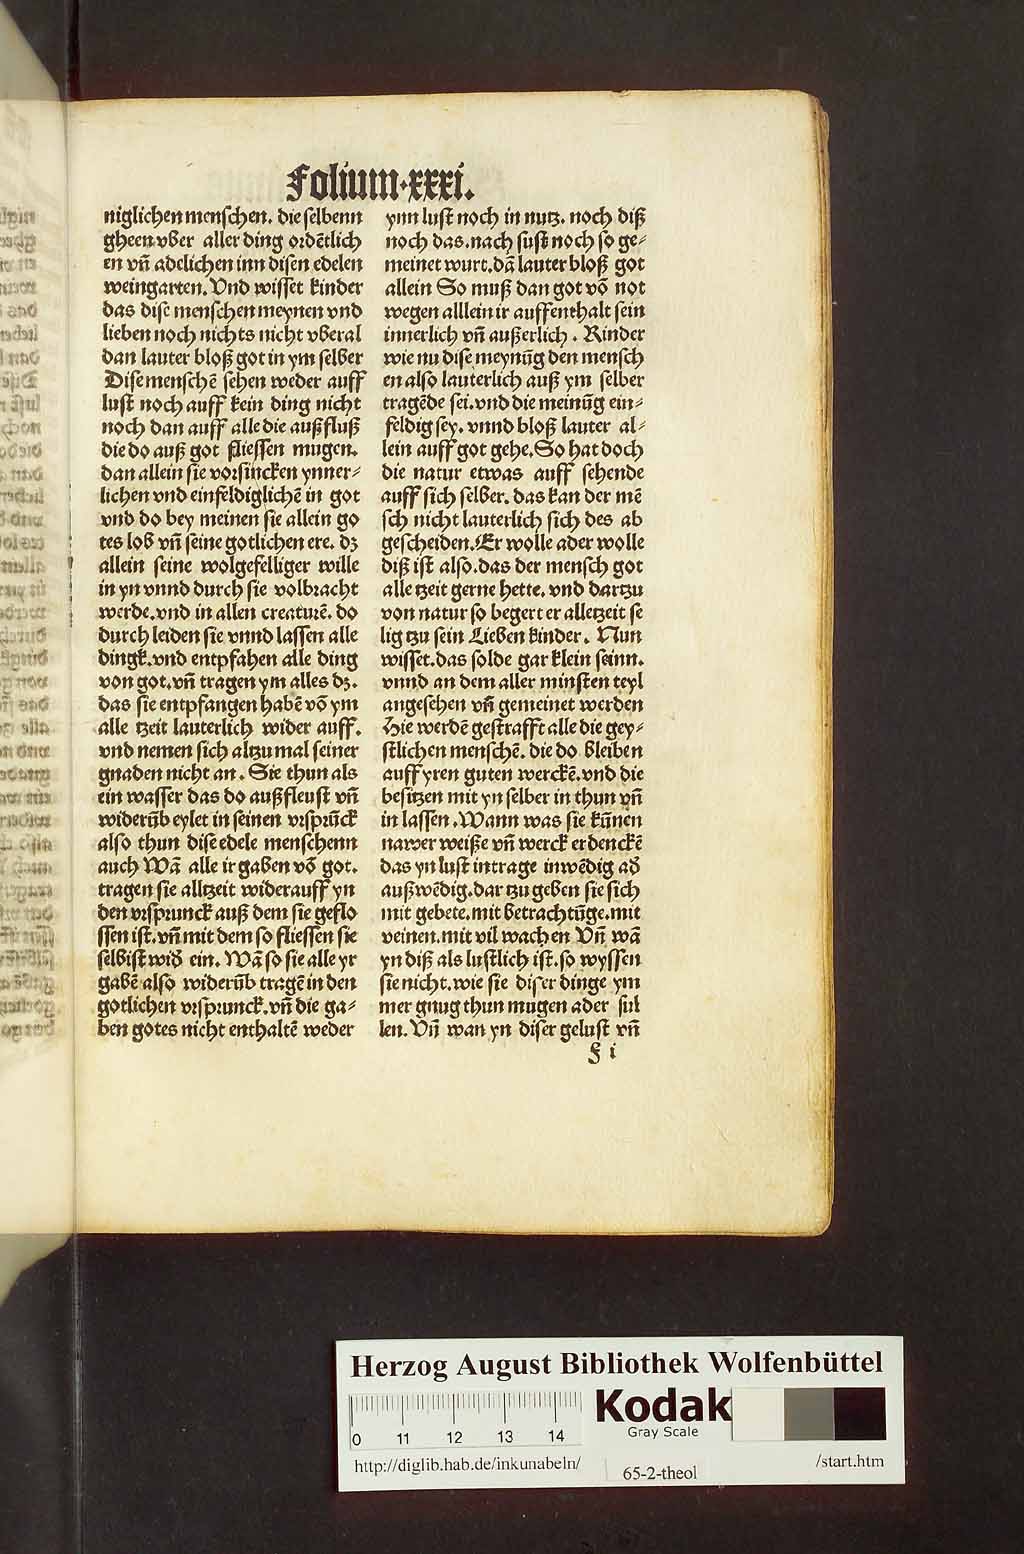 Folium·xxxi.
niglichen menschen. die selbenn
gheen vber aller ding ordẽtlich
en vñ adelichen inn disen edelen
weingarten. Vnd wisset kinder
das dise menschen meynen vnd
lieben noch nichts nicht vberal
dan lauter bloß got in ym selber
Dise menschẽ sehen weder auff
lust noch auff kein ding nicht
noch dan auff alle die außfluß
die do auß got fliessen mugen.
dan allein sie vorsincken ynner⸗
lichen vnd einfeldiglichẽ in got
vnd do bey meinen sie allein go
tes lob vñ seine gotlichen ere. dz
allein seine wolgefelliger wille
in yn vnnd durch sie volbracht
werde. vnd in allen creaturẽ. do
durch leiden sie vnnd lassen alle
dingk. vnd entpfahen alle ding
von got. vñ tragen ym alles dz.
das sie entpfangen habẽ võ ym
alle tzeit lauterlich wider auff.
vnd nemen sich altzu mal seiner
gnaden nicht an. Sie thun als
ein wasser das do außfleust vñ
widerũb eylet in seinen vrsprũck
also thun dise edele menschenn
auch Wã alle ir gaben võ got.
tragen sie alltzeit widerauff yn
den vrsprunck auß dem sie geflo
ssen ist. vñ mit dem so fliessen sie
selbist wið ein. Wã so sie alle yr
gabẽ also widerũb tragẽ in den
gotlichen vrsprunck. vñ die ga⸗
ben gotes nicht enthaltẽ weder
ynn lust noch in nutz. noch diß
noch das. nach sust noch so ge⸗
meinet wurt. dã lauter bloß got
allein So muß dan got võ not
wegen alllein ir auffenthalt sein
innerlich vñ außerlich. Kinder
wie nu dise meynũg den mensch
en also lauterlich auß ym selber
tragẽde sei. vnd die meinũg ein⸗
feldig sey. vnnd bloß lauter al⸗
lein auff got gehe. So hat doch
die natur etwas auff sehende
auff sich selber. das kan der mẽ
sch nicht lauterlich sich des ab
gescheiden. Er wolle ader wolle
diß ist also. das der mensch got
alle tzeit gerne hette. vnd dartzu
von natur so begert er alletzeit se
lig tzu sein Lieben kinder. Nun
wisset. das solde gar klein seinn.
vnnd an dem aller minsten teyl
angesehen vñ gemeinet werden
Hie werdẽ gestrafft alle die gey⸗
stlichen menschẽ. die do bleiben
auff yren guten werckẽ. vnd die
besitzen mit yn selber in thun vñ
in lassen. Wann was sie kũnen
nawer weiße vñ werck erdenckẽ
das yn lust intrage inwẽdig að
außwẽdig. dar tzu geben sie sich
mit gebete. mit betrachtũge. mit
veinen. mit vil wachen Vñ wã
yn diß als lustlich ist. so wyssen
sie nicht. wie sie diser dinge ym
mer gnug thun mugen ader sul
len. Vñ wan yn diser gelust vñ
F i
Herzog August Bibliothek Wolfenbüttel
0 11 12 13 14
Kodak
Gray Scale
http://diglib.hab.de/inkunabeln/
65-2-theol
/start.htm